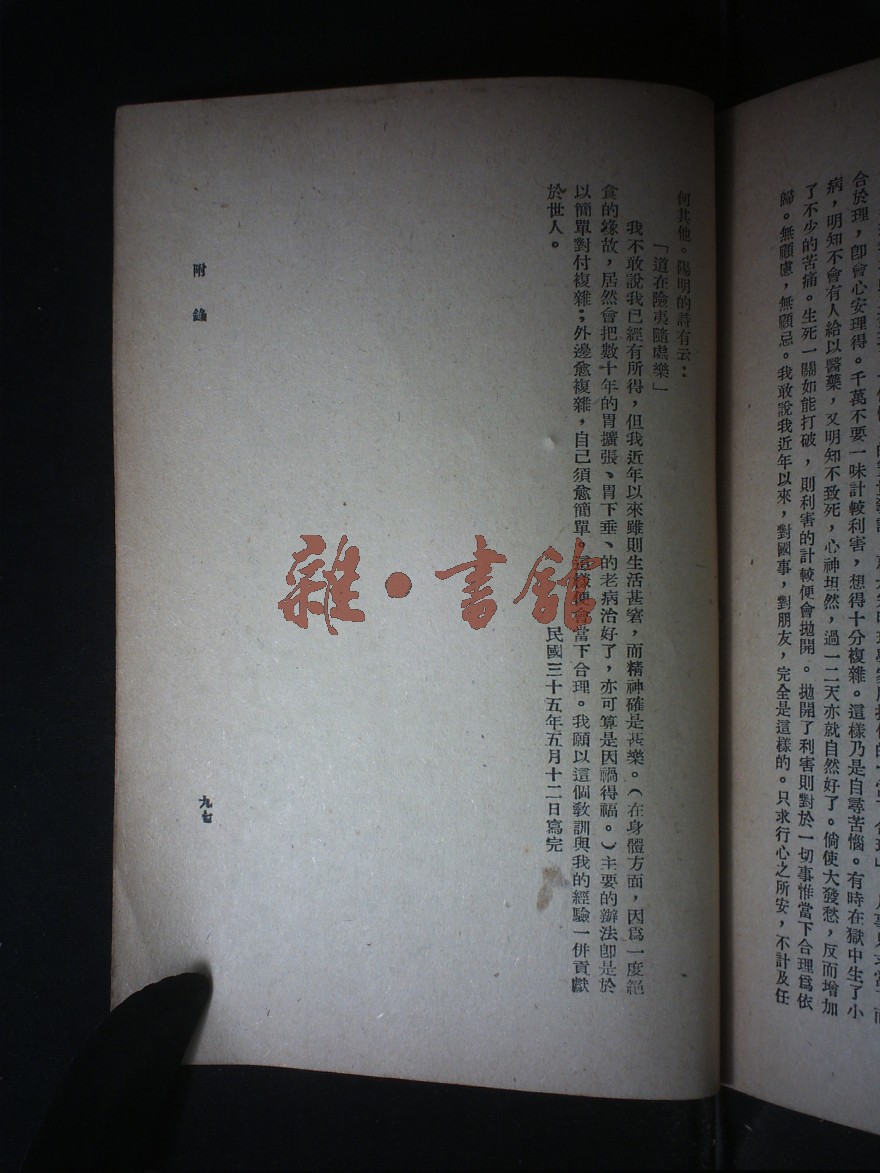 合於理，卽會心安理得。千萬不要一味計較利害，想得十分複雜。這樣乃是自尋苦惱。有時在獄中生了小
病，明知不會有人給以醫藥，又明知不致死，心神坦然，過一二天亦就自然好了。倘使大發愁，反而增加
了不少的苦痛。生死一關如能打破，則利害的計較便會拋開。拋開了利害則對於一切事惟當下合理爲依
歸。無顧慮，無顧忌。我敢說我近年以來，對國事，對朋友，完全是這樣的。只求行心之所安，不計及任
何其他。陽明的詩有云：
「道在險夷隨處樂」
我不敢說我已經有所得，但我近年以來雖則生活甚窘，而精神確是甚樂。（在身體方面，因爲一度絕
食的緣故，居然會把數十年的胃擴張、胃下垂、的老病治好了，亦可算是因禍得福。）主要的辦法卽是於
以簡單對付複雜；外邊愈複雜，自己須愈簡單。這樣便會當下合理。我願以這個敎訓與我的經驗一併貢獻
於世人。
民國三十五年五月十二日寫完
附錄
九七
雜·書館